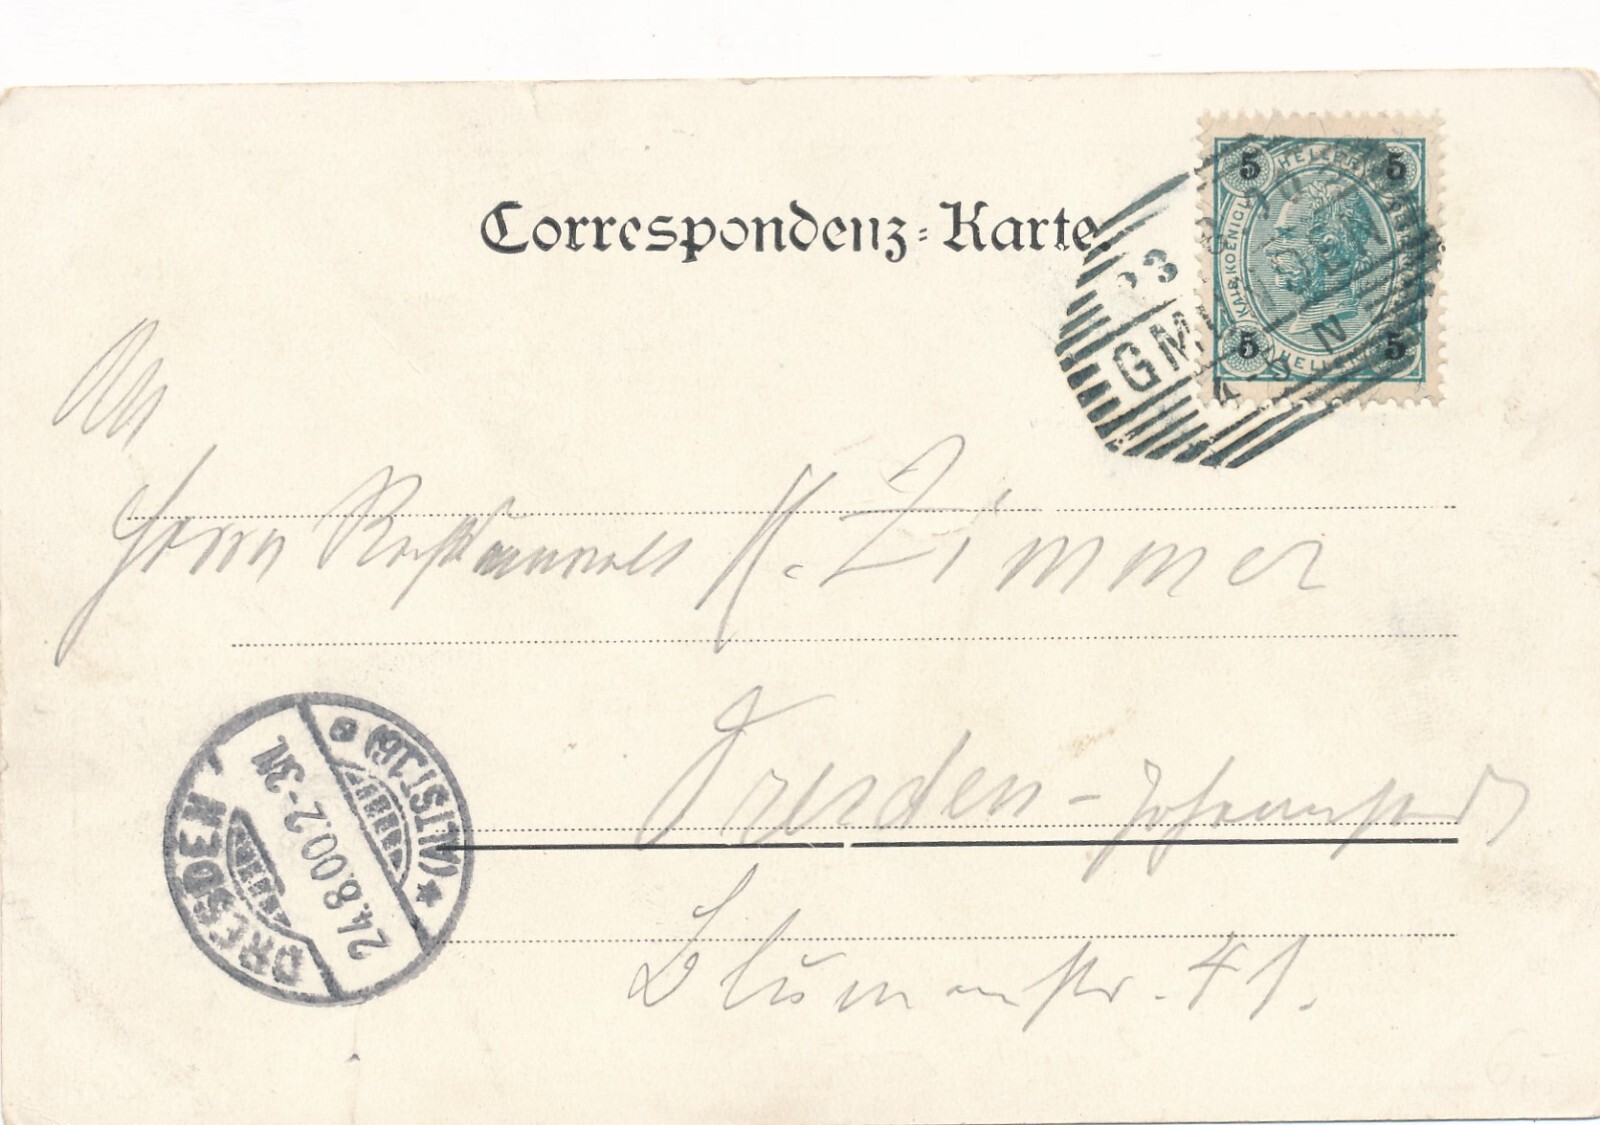 Correspondenz-Karte.
5 HELLER 5
KAIS. KOENIGL.
5 HELLER 5
23 8
GM
N
An
Herrn K. Zimmer
Dresden - Johannstadt
Blumenstr. 41.
DRESDEN
24.8.00.2-3N.
(ALTST.16) e